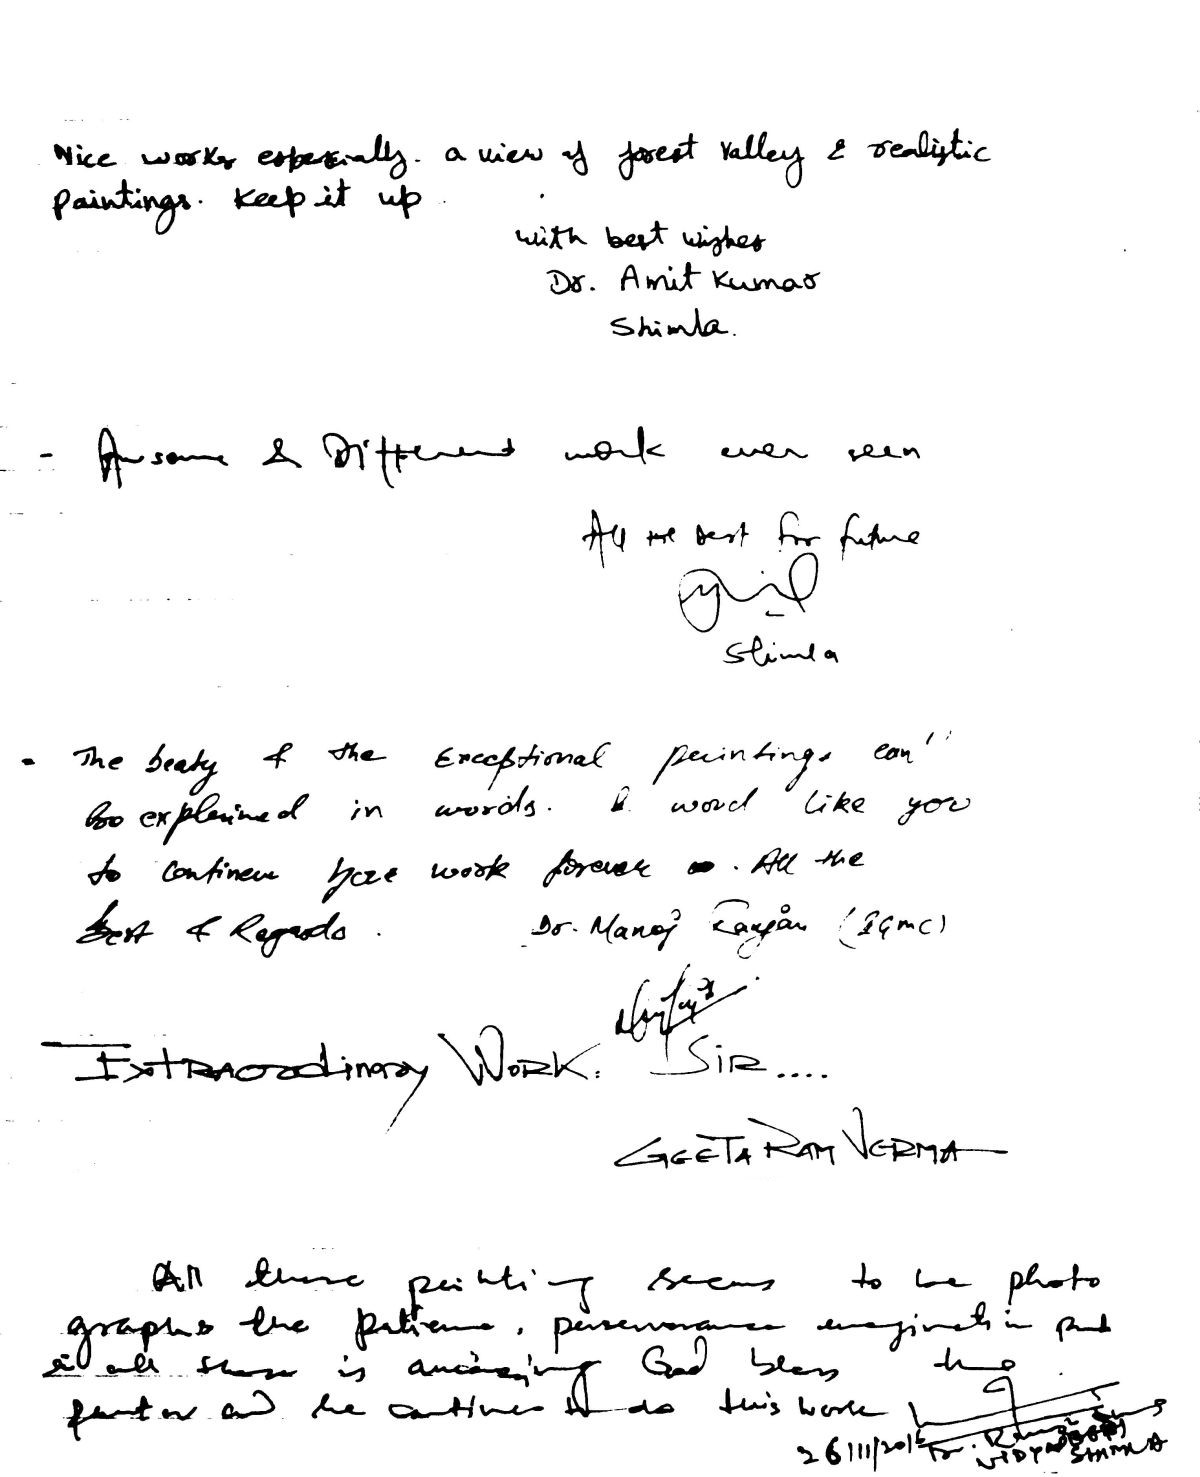 Nice works especially. a view of forest valley & realistic
Paintings. Keep it up
With best wishes
Dr. Amit Kumar
Shimla.
- Awsome & Different work ever seen
All the best for future
Shimla
- The beaty of the Exceptional paintings can''
be explained in words. I woud like you
to continew your work forever. All the
best & Regards. Dr. Manoj Ranjan (IGMC)
EXTRAORdinary WORK. SIR....
GEETA RAM VERMA
All these painting seems to be photo
graphs the patience, perserverance imagination put
in all these is amazing God bless the
painter and he continues to do this work
26/11/2015 Dr.
SHIMLA